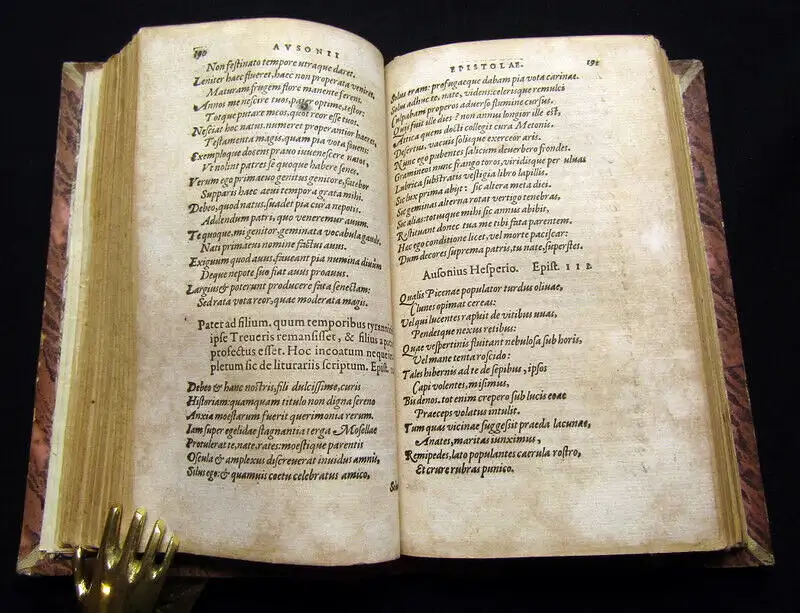 190 AVSONII
Non festinato tempore utraque daret.
Leniter haec flueret, haec non properata veniret.
Maturam frugem flore manente ferens.
Annos me nescire tuos, pater optime, testor:
Totque putare meos, quot reor esse tuos.
Nesciat hoc natus, numeret properantior haeres,
Testamenta magis, quam pia vota fovens:
Exemploque docens pravo iuvenescere natos,
Ut nolint patres se quoque habere senes.
Verum ego primaevo genitus genitore, fatebor
Supparis haec aevi tempora grata mihi.
Debeo, quod natus, suadet pia cura nepotis.
Addendum patri, quo veneremur avum.
Te quoque, mi genitor, geminata vocabula gaudent,
Nati primaevi nomine factus avus.
Exiguum quod avus, faveant pia numina divum
Deque nepote suo fiat avus proavus.
Largius & poterunt producere fata senectam:
Sed rata vota reor, quae moderata magis.
Pater ad filium, quum temporibus tyrannicis
ipse Treueris remansisset, & filius a
profectus esset. Hoc incoatum neque im
pletum sic de liturariis scriptum. Epist.
Debeo & hanc nostris, fili dulcissime, curis
Historiam: quamquam titulo non digna sereno
Anxia moestarum fuerit querimonia rerum.
Iam super egelidae stagnantia terga Mosellae
Protulerat te, nate, rates: moestique parentis
Oscula & amplexus discreverat invidus amnis,
Solus ego: & quamvis coetu celebratus amico,
EPISTOLAE. 191
Solus eram: profugaeque dabam pia vota carinae.
Solus adhuc te, nate, videns: celerisque remulci
Culpabam properos adverso flumine cursus.
Quis fuit ille dies? non annus longior ille est,
Attica quem docti collegit cura Metonis.
Desertus, vacuis solisque exerceor aris.
Nunc ego pubentes salicum deverbero frondes.
Gramineos nunc frango toros, viridisque per ulvas
Lubrica substratis vestigia libro lapillis.
Sic lux prima abijt: sic altera meta diei.
Sic geminas alterna rotat vertigo tenebras,
Sic alias: totusque mihi sic annus abibit,
Restituant donec tua me tibi fata parentem.
Hac ego conditione licet, vel morte paciscar:
Dum decores suprema patris, tu nate, superstes.
Ausonius Hesperio. Epist. III.
Qualis Picenae populator turdus olivae,
Clunes opimat cereas:
Vel qui lucentes rapuit de vitibus uvas,
Pendetque nexus retibus:
Quae vespertinis fluitant nebulosa sub horis,
Vel mane tenta roscido:
Tales hibernis ad te de sepibus, ipsos
Capi volentes, misimus,
Bis denos. tot enim crepero sub lucis eoae
Praeceps volatus intulit.
Tum quas vicinae suggessit praeda lacunae,
Anates, maritas iunximus,
Remipedes, lato populantes caerula rostro,
Et crure rubras punico.